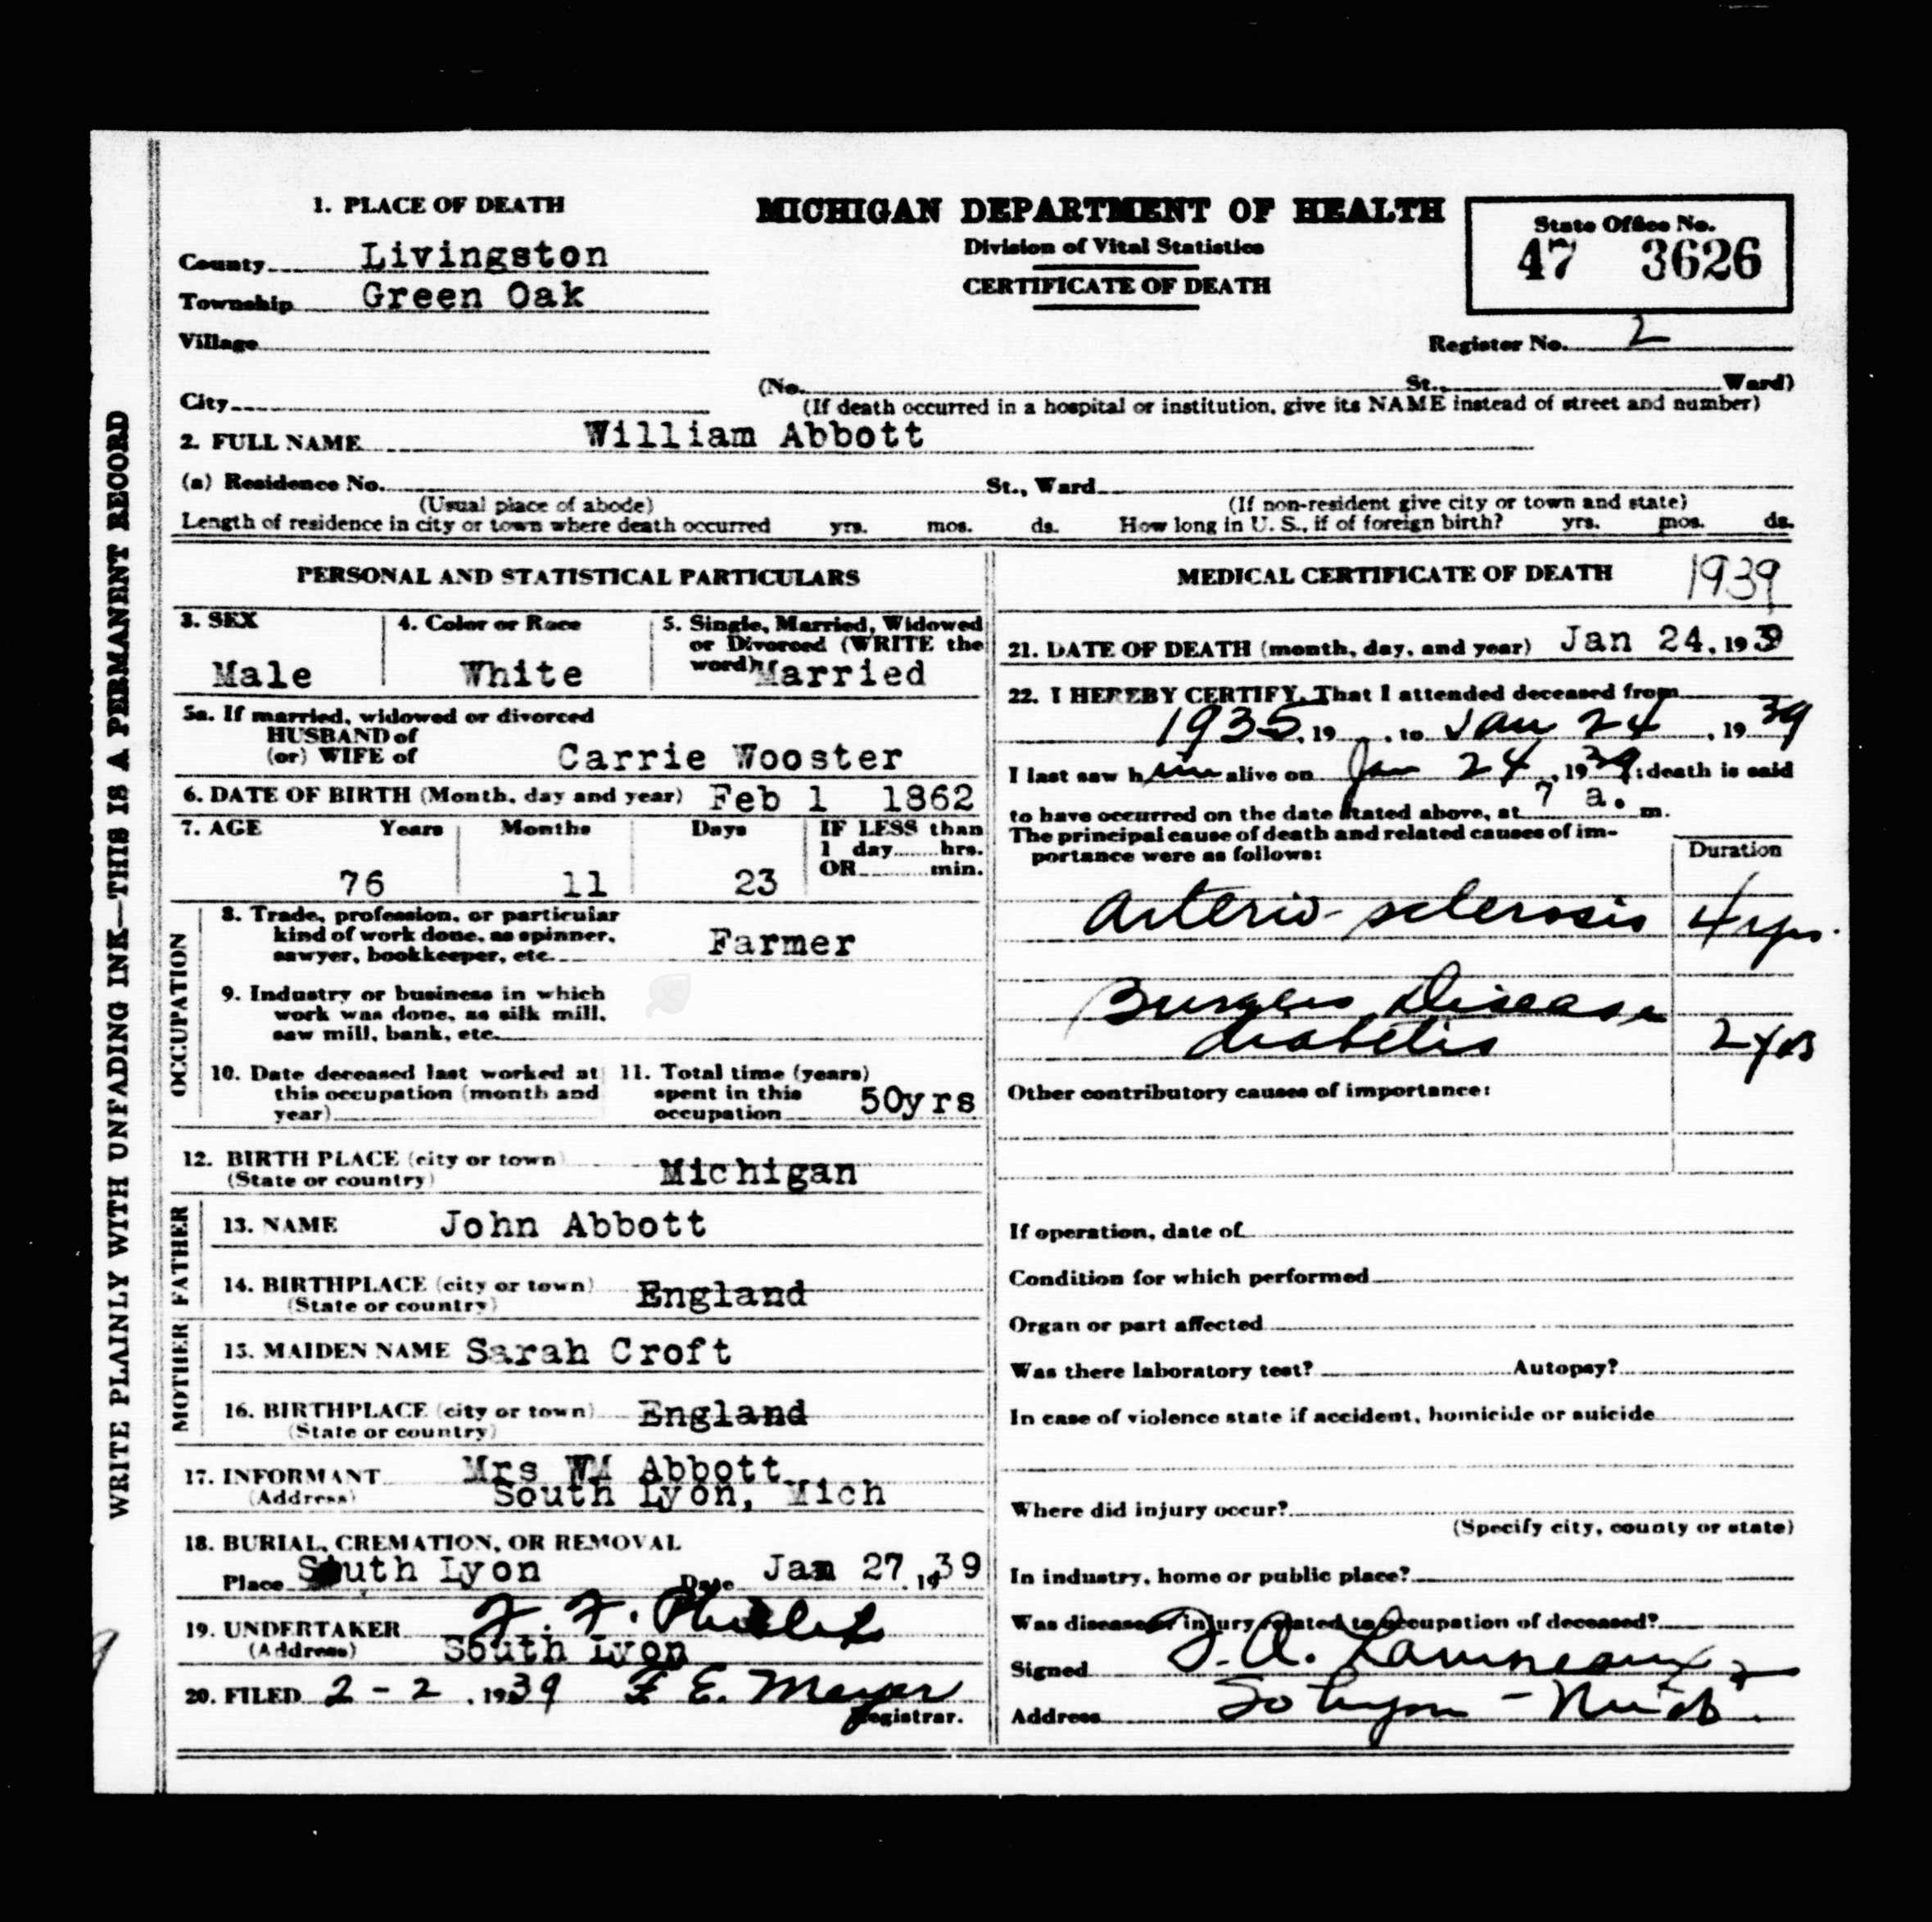 WRITE PLAINLY WITH UNFADING INK—THIS IS A PERMANENT RECORD
1. PLACE OF DEATH
County Livingston
Township Green Oak
Village
City
MICHIGAN DEPARTMENT OF HEALTH
Division of Vital Statistics
CERTIFICATE OF DEATH
State Office No.
47 3626
Register No. 2
(No. St., Ward)
(If death occurred in a hospital or institution, give its NAME instead of street and number)
2. FULL NAME William Abbott
(a) Residence No. St., Ward
(Usual place of abode) (If non-resident give city or town and state)
Length of residence in city or town where death occurred yrs. mos. ds. How long in U. S., if of foreign birth? yrs. mos. ds.
PERSONAL AND STATISTICAL PARTICULARS
3. SEX
Male
4. Color or Race
White
5. Single, Married, Widowed
or Divorced (WRITE the
word) Married
5a. If married, widowed or divorced
HUSBAND of
(or) WIFE of Carrie Wooster
6. DATE OF BIRTH (Month, day and year) Feb 1 1862
7. AGE Years Months Days
76 11 23
IF LESS than
1 day hrs.
OR min.
OCCUPATION
8. Trade, profession, or particular
kind of work done, as spinner,
sawyer, bookkeeper, etc. Farmer
9. Industry or business in which
work was done, as silk mill,
saw mill, bank, etc.
10. Date deceased last worked at
this occupation (month and
year)
11. Total time (years)
spent in this
occupation 50yrs
12. BIRTH PLACE (city or town)
(State or country) Michigan
FATHER
13. NAME John Abbott
14. BIRTHPLACE (city or town)
(State or country) England
MOTHER
15. MAIDEN NAME Sarah Croft
16. BIRTHPLACE (city or town)
(State or country) England
17. INFORMANT Mrs WM Abbott
(Address) South Lyon, Mich
18. BURIAL, CREMATION, OR REMOVAL
Place South Lyon Date Jan 27, 1939
19. UNDERTAKER
(Address) South Lyon
20. FILED 2-2, 1939 F E. Meyer
Registrar.
MEDICAL CERTIFICATE OF DEATH 1939
21. DATE OF DEATH (month, day, and year) Jan 24, 1939
22. I HEREBY CERTIFY, That I attended deceased from
1935, 19 , to Jan 24, 1939
I last saw him alive on Jan 24, 1939; death is said
to have occurred on the date stated above, at 7 a. m.
The principal cause of death and related causes of im-
portance were as follows:
Duration
Arterio-sclerosis 4 yrs.
Disease
diabetis 2 yrs
Other contributory causes of importance:
If operation, date of
Condition for which performed
Organ or part affected
Was there laboratory test? Autopsy?
In case of violence state if accident, homicide or suicide
Where did injury occur?
(Specify city, county or state)
In industry, home or public place?
Was disease or injury related to occupation of deceased?
Signed
Address So Lyon - Mich.